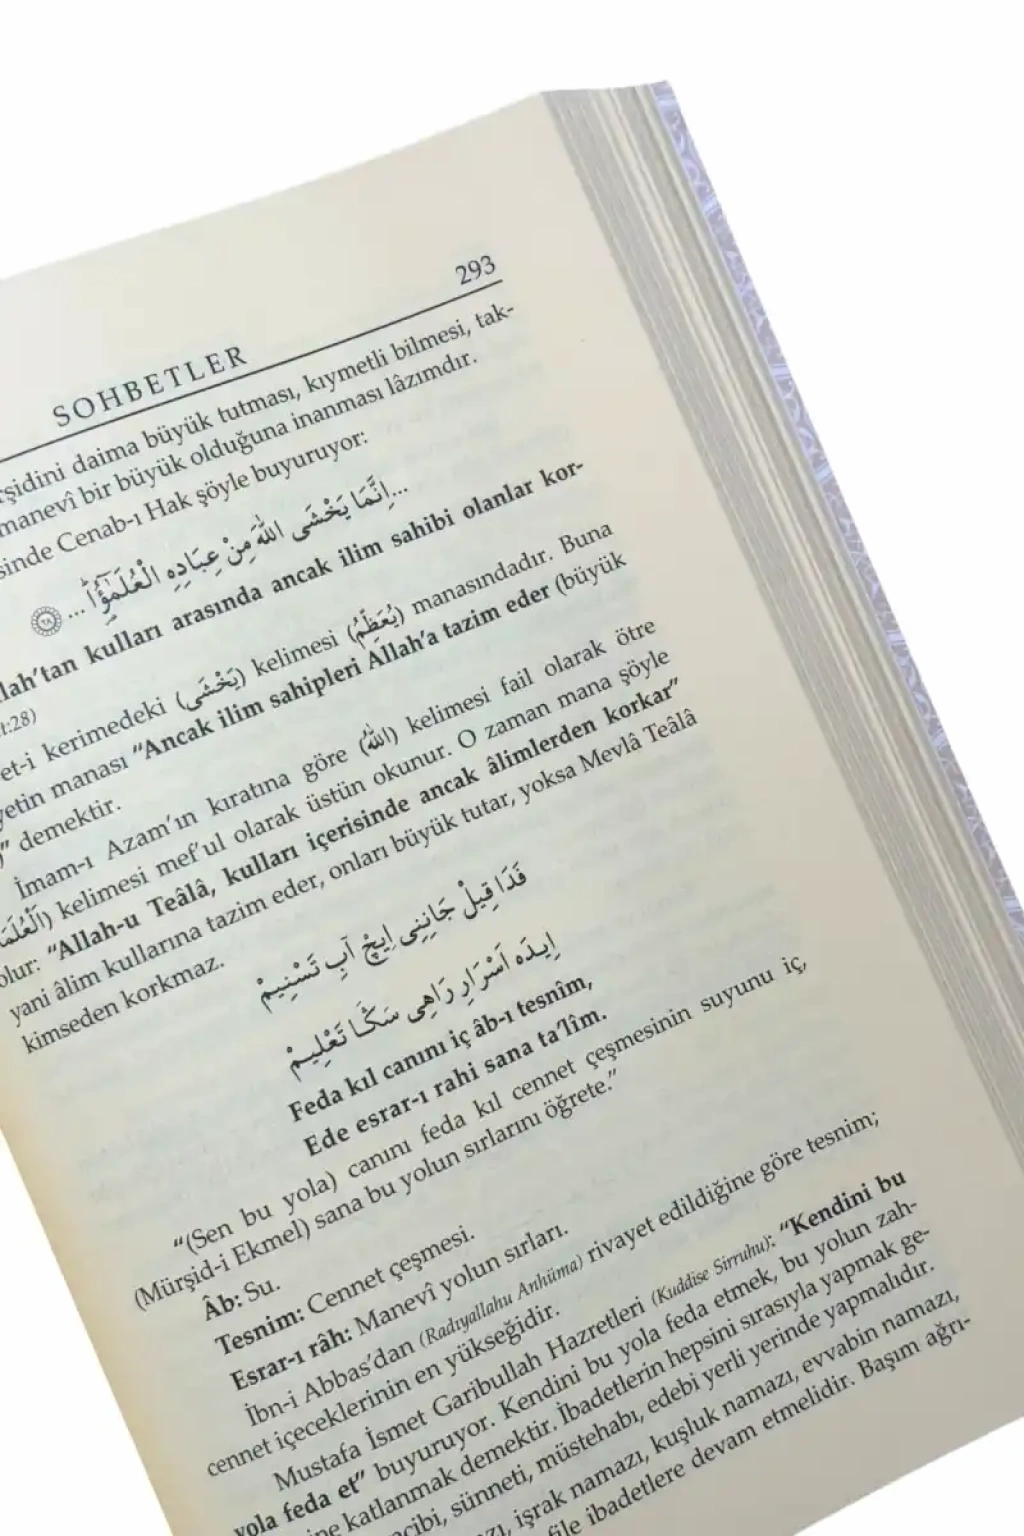 293
SOHBETLER
daima büyük tutması, kıymetli bilmesi, tak-
manevî bir büyük olduğuna inanması lâzımdır.
Cenab-ı Hak şöyle buyuruyor:
...اِنَّمَا يَخْشَى اللّٰهَ مِنْ عِبَادِهِ الْعُلَمٰٓؤُا ... ﴿٢٨﴾
kulları arasında ancak ilim sahibi olanlar kor-
kerimedeki (يَخْشَى) kelimesi (يُعَظِّمُ) manasındadır. Buna
manası "Ancak ilim sahipleri Allah'a tazim eder (büyük
demektir.
İmam-ı Azam'ın kıratına göre (اللّٰهُ) kelimesi fail olarak ötre
kelimesi mef'ul olarak üstün okunur. O zaman mana şöyle
olur: "Allah-u Teâlâ, kulları içerisinde ancak âlimlerden korkar"
yani âlim kullarına tazim eder, onları büyük tutar, yoksa Mevlâ Teâlâ
kimseden korkmaz.
فَدَا قِيلْ جَانِنِى اِيچْ آبِ تَسْنِيمْ
اِيدَه اَسْرَارِ رَاهِى سَكَا تَعْلِيمْ
Feda kıl canını iç âb-ı tesnîm,
Ede esrar-ı rahi sana ta'lîm.
"(Sen bu yola) canını feda kıl cennet çeşmesinin suyunu iç,
(Mürşid-i Ekmel) sana bu yolun sırlarını öğrete."
Âb: Su.
Tesnim: Cennet çeşmesi.
Esrar-ı râh: Manevî yolun sırları.
İbn-i Abbas'dan (Radıyallahu Anhüma) rivayet edildiğine göre tesnim;
cennet içeceklerinin en yükseğidir.
Mustafa İsmet Garibullah Hazretleri (Kuddise Sirruhu): "Kendini bu
yola feda et" buyuruyor. Kendini bu yola feda etmek, bu yolun zah-
katlanmak demektir. İbadetlerin hepsini sırasıyla yapmak ge-
sünneti, müstehabı, edebi yerli yerinde yapmalıdır.
işrak namazı, kuşluk namazı, evvabin namazı,
ibadetlere devam etmelidir. Başım ağrı-